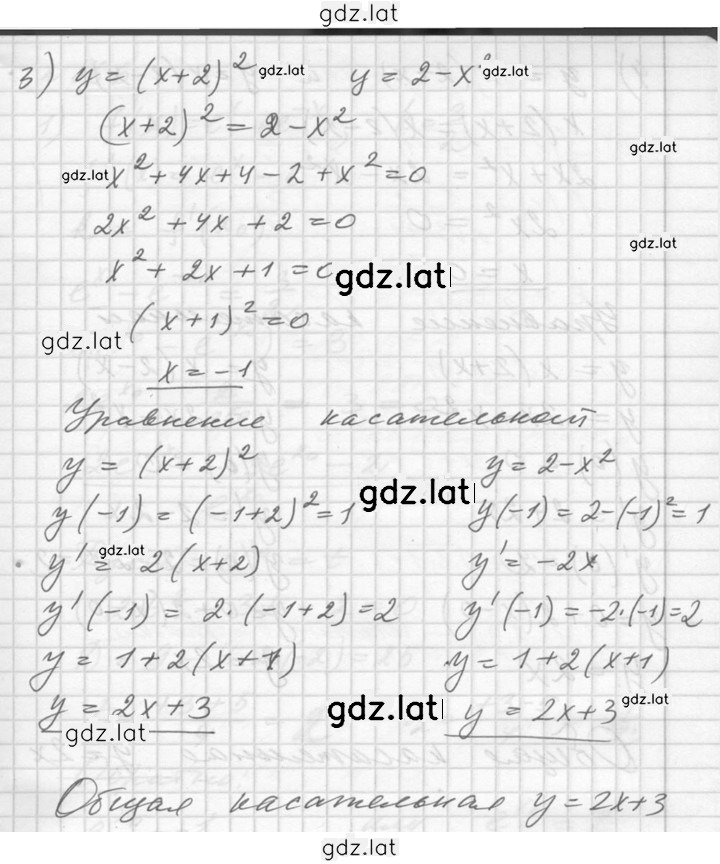 gdz.lat
3) y = (x+2)² gdz.lat y = 2 - x² gdz.lat
(x+2)² = 2 - x² gdz.lat
gdz.lat x² + 4x + 4 - 2 + x² = 0
2x² + 4x + 2 = 0 gdz.lat
x² + 2x + 1 = 0 gdz.lat
(x+1)² = 0
gdz.lat
x = -1
Уравнение касательной
y = (x+2)² y = 2 - x²
gdz.lat
y(-1) = (-1+2)² = 1 y(-1) = 2 - (-1)² = 1
y' = gdz.lat 2(x+2) y' = -2x
y'(-1) = 2·(-1+2) = 2 y'(-1) = -2·(-1) = 2
y = 1 + 2(x+1) y = 1 + 2(x+1)
y = 2x + 3 gdz.lat y = 2x + 3 gdz.lat
gdz.lat
Общая касательная y = 2x + 3
gdz.lat